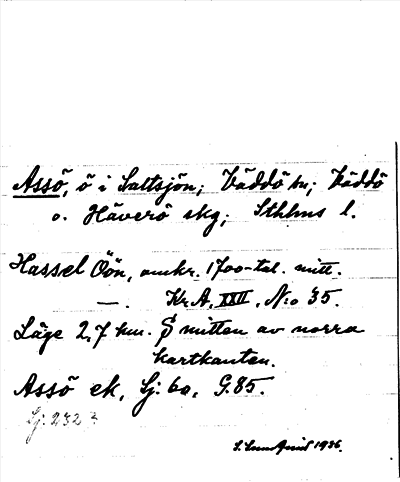 Assö, ö i Saltsjön; Väddö sn; Väddö
o. Häverö skg; Sthlms l.
Hassel Öön, omkr. 1700-tal. mitt.
—. Kr.A. XXII, N:o 35.
Läge 2,7 km. S mitten av norra
kartkanten.
Assö ek, Lj. 6a, G.85.
Lj: 232
S. Lundquist 1936.